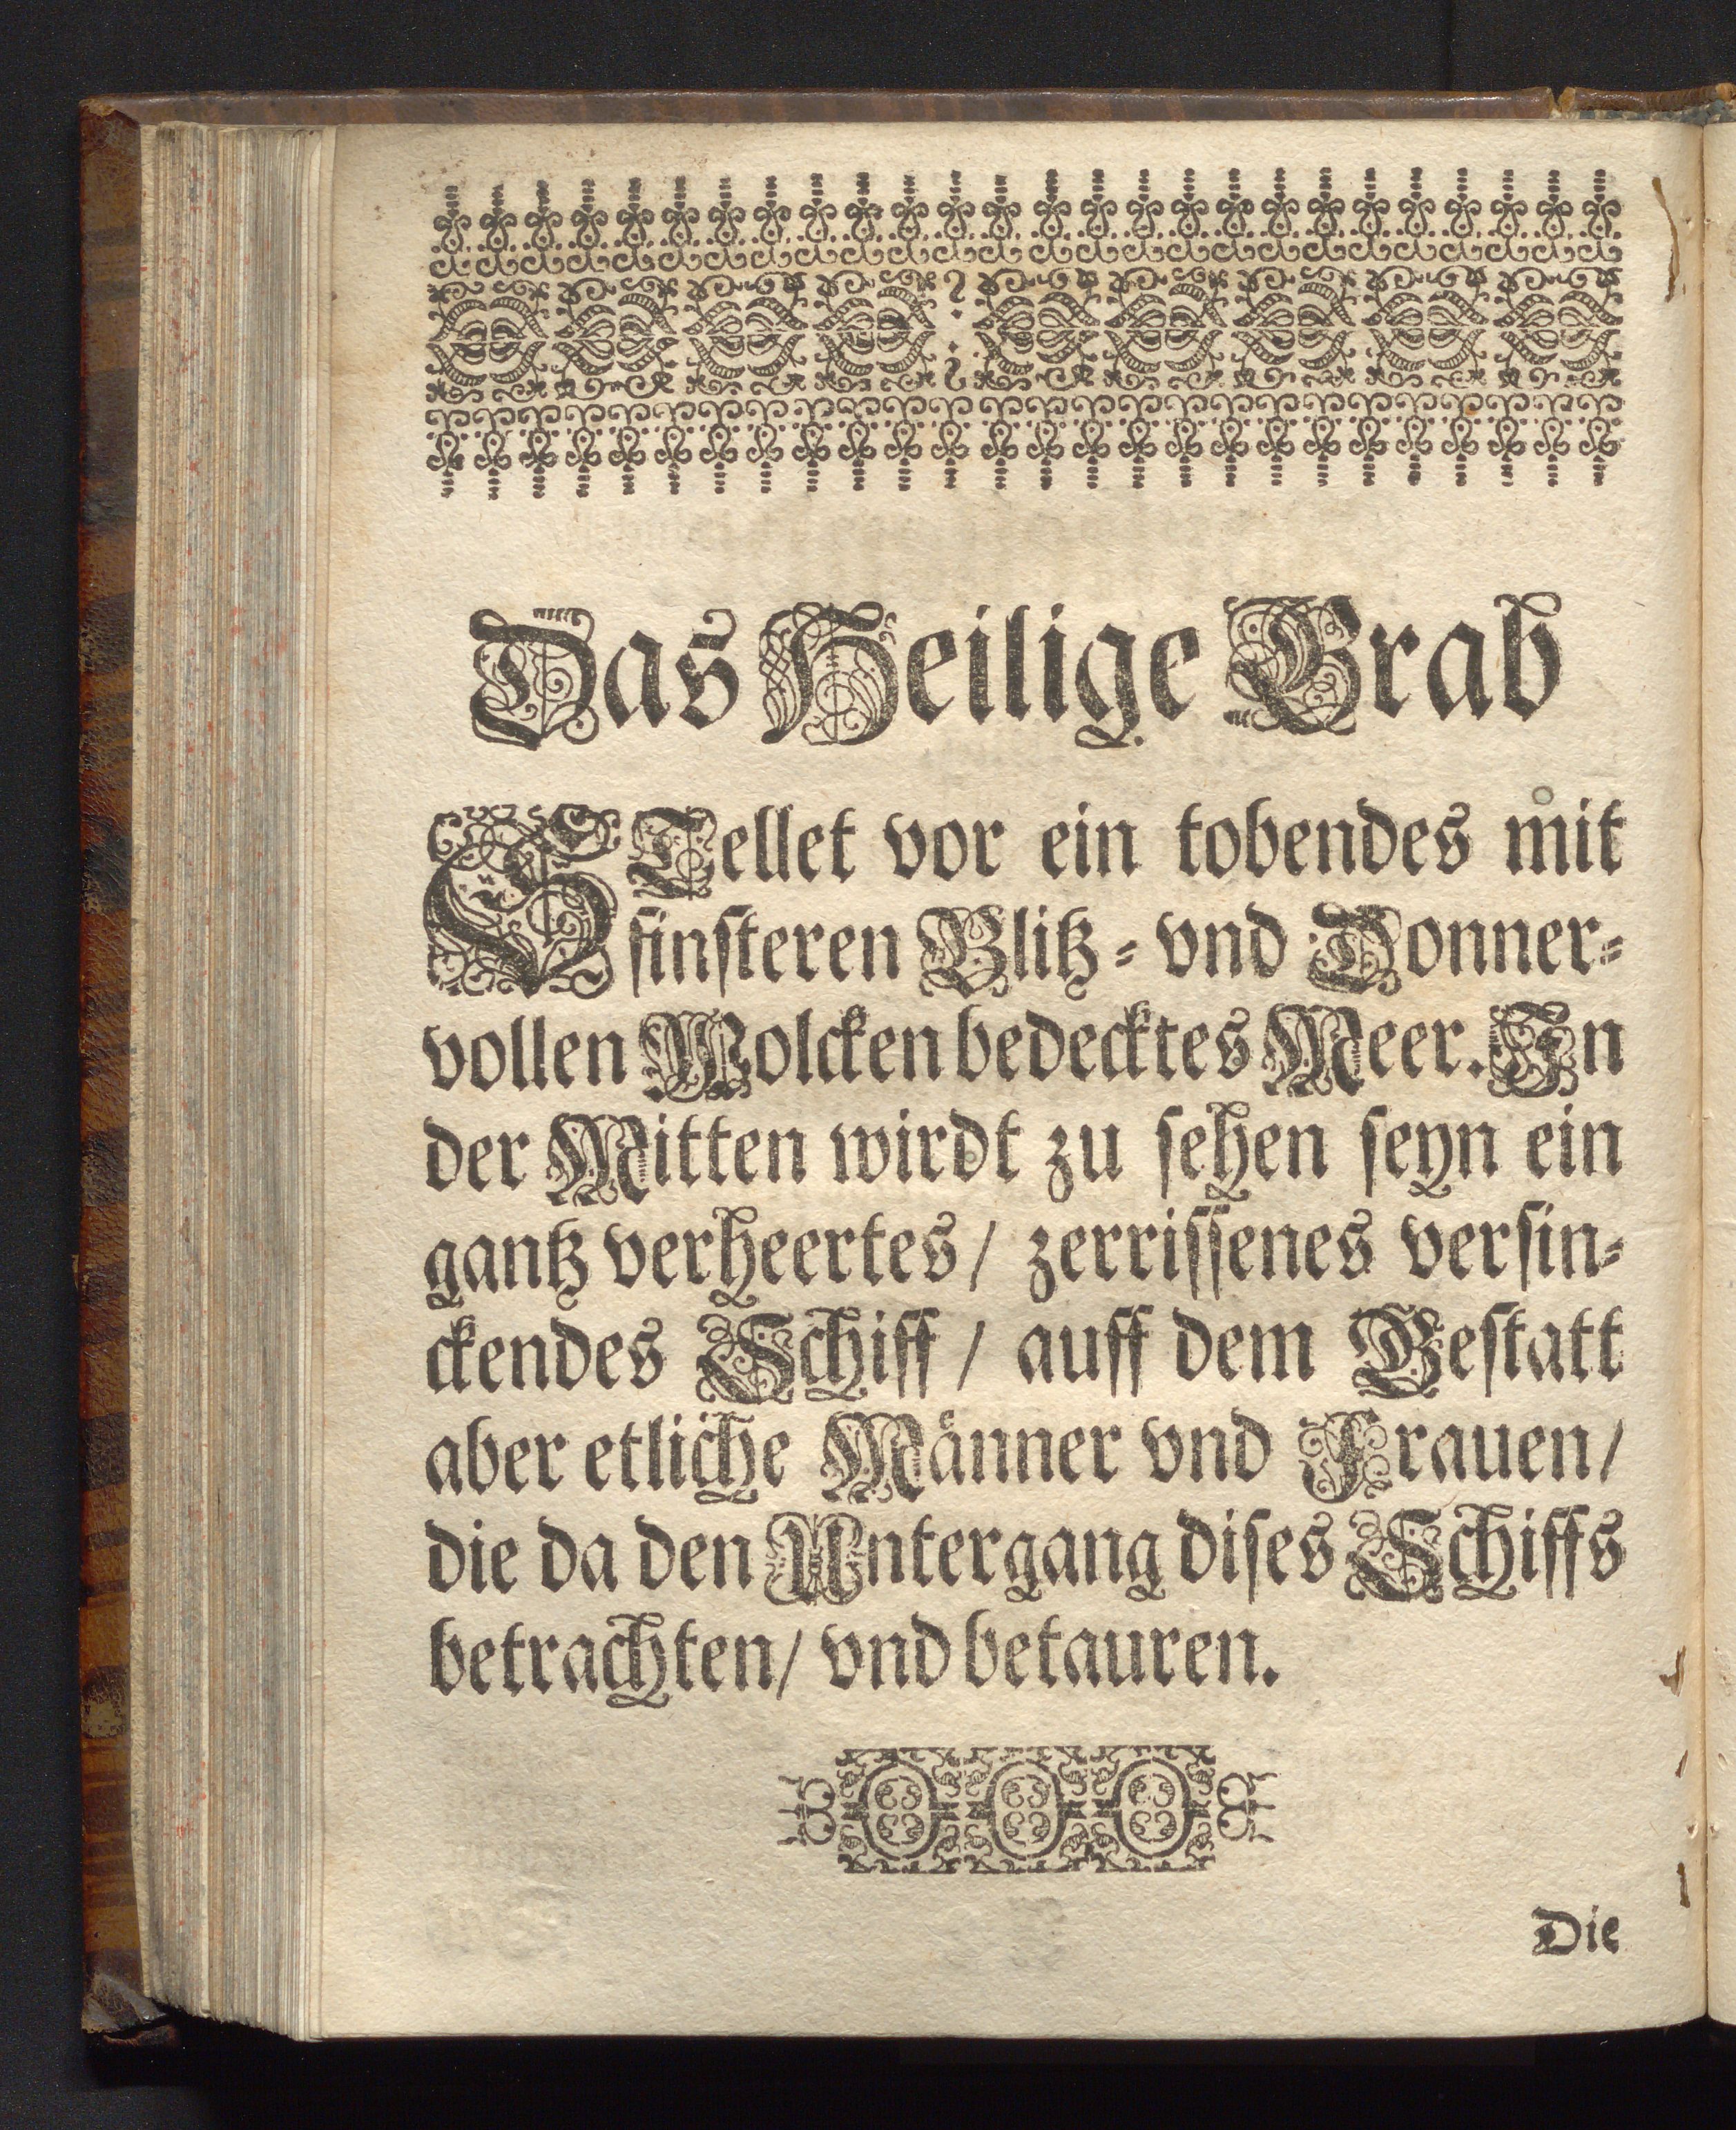 Das Heilige Grab
STellet vor ein tobendes mit
finsteren Blitz- vnd Donner-
vollen Wolcken bedecktes Meer. In
der Mitten wirdt zu sehen seyn ein
gantz verheertes / zerrissenes versin-
ckendes Schiff / auff dem Gestatt
aber etliche Männer vnd Frauen /
die da den Untergang dises Schiffs
betrachten / vnd betauren.
Die